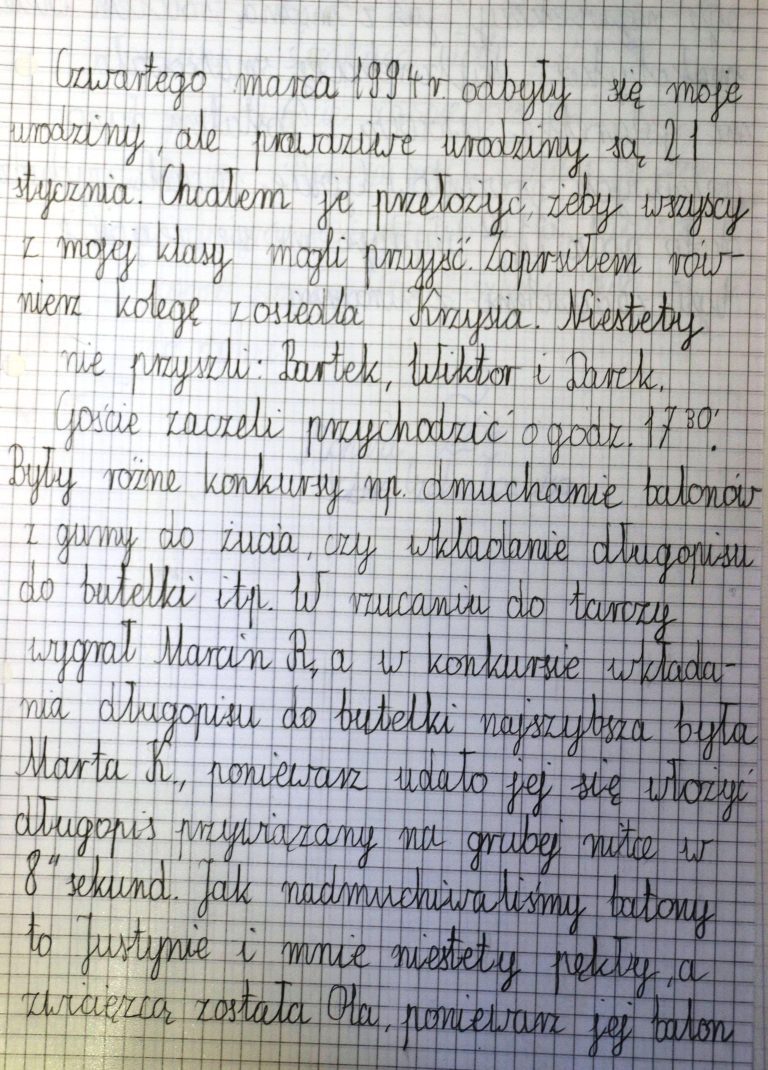 Czwartego marca 1994 r. odbyły się moje
urodziny, ale prawdziwe urodziny są 21
stycznia. Chcałem je przełożyć, żeby wszyscy
z mojej klasy mogli przyjść. Zaprsiłem rów-
nierz kolegę z osiedla Krzysia. Niestety
nie przyszli: Bartek, Wiktor i Darek.
Goście zaczeli przychodzić o godz. 17 30'.
Były różne konkursy np. dmuchanie balonów
z gumy do żucia, czy wkładanie długopisu
do butelki itp. W rzucaniu do tarczy
wygrał Marcin R, a w konkursie wkłada-
nia długopisu do butelki najszybsza była
Marta K., poniewarz udało jej się włożyć
długopis przywiązany na grubej nitce w
8" sekund. Jak nadmuchiwaliśmy balony
to Justynie i mnie niestety pękły, a
zwcięzcą została Ola, poniewarz jej balon